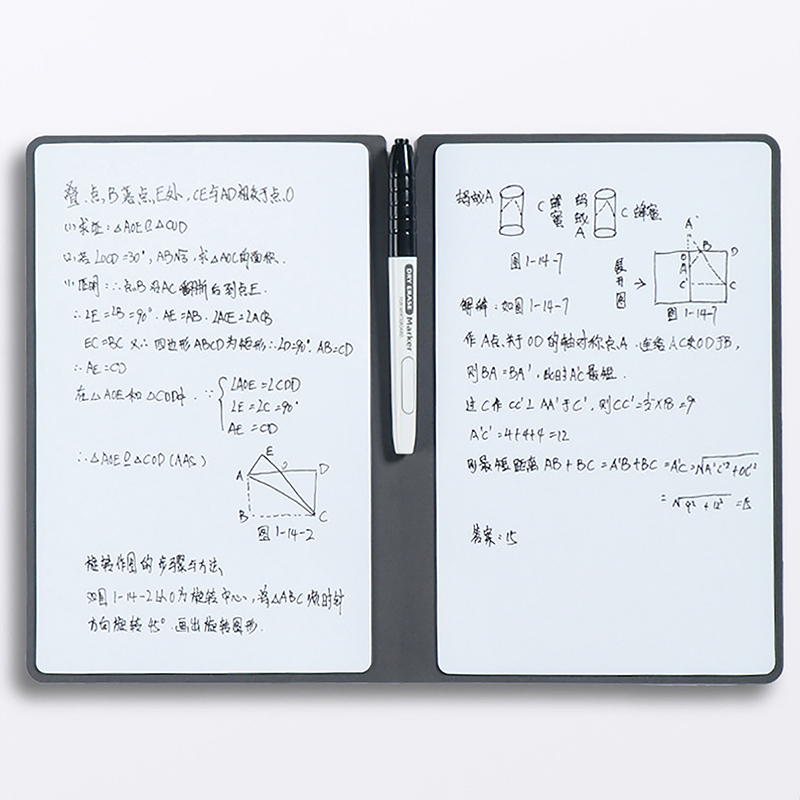 叠,点,B落点,E处,CE与AD相交于点,O
(1)求证:△AOE≌△COD
(2)若∠OCD=30°,AB=,求△AOC的面积.
(1)证明:∵点B沿AC翻折后到点E.
∴∠E=∠B=90°.AE=AB.∠ACE=∠ACB
EC=BC 又∵四边形ABCD为矩形∴∠D=90°.AB=CD
∴AE=CD
在△AOE和△COD中.∵
∠AOE=∠COD
∠E=∠C=90°
AE=CD
∴△AOE≌△COD(AAS)
E
A O D
B C
图1-14-2
旋转作图的步骤与方法、
如图1-14-2以O为旋转中心,将△ABC顺时针
方向旋转45°.画出旋转图形.
DRY ERASE Marker
FOR WHITEBOARD
蚂蚁A C蜂蜜 蚂蚁A C蜂蜜
图1-14-7
展开图
A'
B D
O
A
C' C
图1-14-7
解释:如图1-14-7
作A点,关于OD的轴对称点,A.连结AC交OD于B,
则BA=BA',此时A'C最短.
过C作CC'⊥AA'于C',则CC'=½×18=9
A'C'=4+4+4=12
则最短距离AB+BC=A'B+BC=A'C=√A'C'²+CC'²
=√9²+12²=15
答案:15